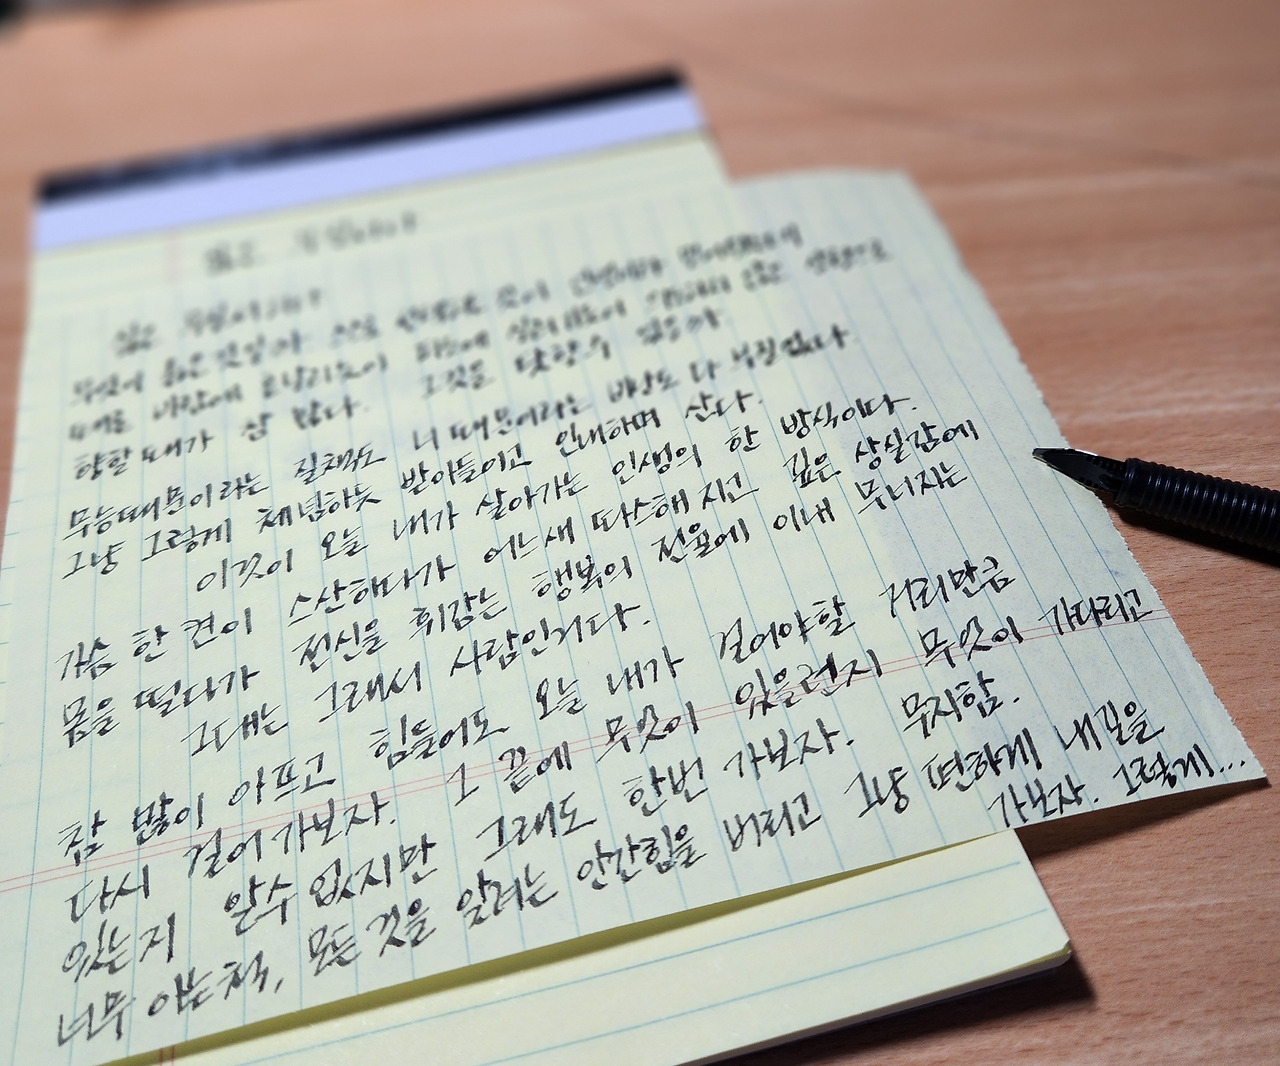 삶은 무엇인가?
삶은 무엇인가?
향할 때가 참 많다. 그것을 탓할 수 있을까
무능때문이라는 질책도 너 때문이라는 비난도 다 부질없다.
그냥 그렇게 체념하듯 받아들이고 인내하며 산다.
이것이 오늘 내가 살아가는 인생의 한 방식이다.
가슴 한 켠이 스산하다가 어느새 따스해지고 깊은 상실감에
몸을 떨다가 전신을 휘감는 행복의 전율에 이내 무너지는
그대는 그래서 사람인거다.
참 많이 아프고 힘들어도 오늘 내가 걸어야할 거리만큼
다시 걸어가보자. 그 끝에 무엇이 있을런지 무엇이 기다리고
있는지 알수 없지만 그래도 한번 가보자. 무지함.
너무 아는척, 모든 것을 알려는 안간힘을 버리고 그냥 편하게 내길을
가보자. 그렇게...